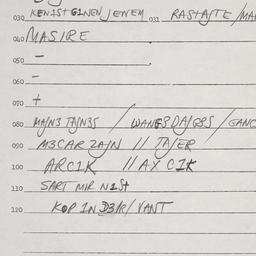 030 KENIST GINEN JENEM 031 RASTAJTE/MA
040 MASIRE
050 –
060 –
070 +
080 MAJN3 TAJN3S / WANE8DAJQ8S / GANC
090 M3CAR ZAJN // TAJER
100 ARCIK // AX CIK
110 SART MIR NIST
120 KOP IN D3R/VANT